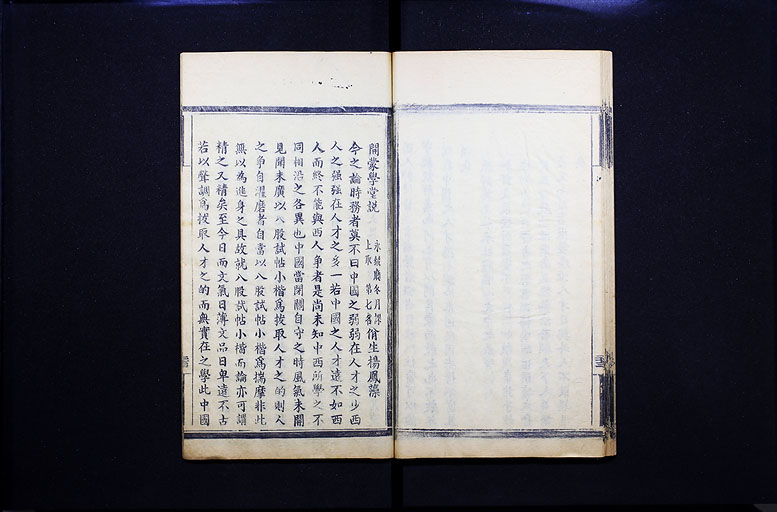 開蒙學堂說 永綏廳冬月課上取第七名 附生楊鳳藻
今之論時務者莫不曰中國之弱弱在人才之少西
人之強強在人才之多一若中國之人才遠不如西
人而終不能與西人爭者是尚未知中西所學之不
同相沿之各異也中國當閉關自守之時風氣未開
見聞未廣以八股試帖小楷爲拔取人才之的則人
之爭自濯磨者自當以八股試帖小楷爲揣摩非此
無以爲進身之具故就八股試帖小楷而論亦可謂
精之又精矣至今日而文氣日薄文品日卑遠不古
若以聲調爲拔取人才之的而與實在之學此中國